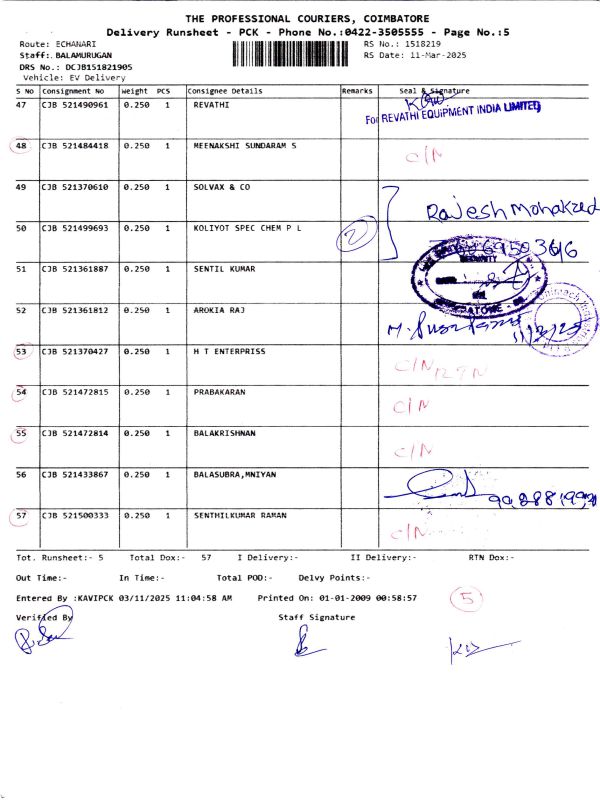 THE PROFESSIONAL COURIERS, COIMBATORE
Delivery Runsheet - PCK - Phone No.:0422-3505555 - Page No.:5
Route: ECHANARI RS No.: 1518219
Staff: BALAMURUGAN RS Date: 11-Mar-2025
DRS No.: DCJB151821905
Vehicle: EV Delivery
S No Consignment No Weight PCS Consignee Details Remarks Seal & Signature
47 CJB 521490961 0.250 1 REVATHI
For REVATHI EQUIPMENT INDIA LIMITED
48 CJB 521484418 0.250 1 MEENAKSHI SUNDARAM S C/N
49 CJB 521370610 0.250 1 SOLVAX & CO
Rajesh Mohakzed
50 CJB 521499693 0.250 1 KOLIYOT SPEC CHEM P L 2
51 CJB 521361887 0.250 1 SENTIL KUMAR
SECURITY
52 CJB 521361812 0.250 1 AROKIA RAJ
11/3/25
53 CJB 521370427 0.250 1 H T ENTERPRISS C/N
54 CJB 521472815 0.250 1 PRABAKARAN C/N
55 CJB 521472814 0.250 1 BALAKRISHNAN C/N
56 CJB 521433867 0.250 1 BALASUBRA,MNIYAN
57 CJB 521500333 0.250 1 SENTHILKUMAR RAMAN C/N
Tot. Runsheet:- 5 Total Dox:- 57 I Delivery:- II Delivery:- RTN Dox:-
Out Time:- In Time:- Total POD:- Delvy Points:-
Entered By :KAVIPCK 03/11/2025 11:04:58 AM Printed On: 01-01-2009 00:58:57 5
Verified By Staff Signature